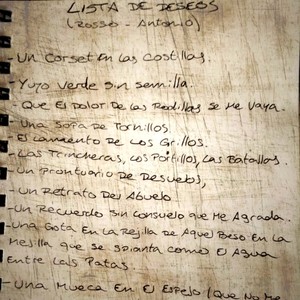 LISTA DE DESEOS
(Rosso - Antonio)
- Un Corset En las Costillas.
- Yuyo Verde Sin Semilla.
- Que El Dolor De las Rodillas se Me Vaya.
- Una Sopa De Tornillos
El Lamento De Los Grillos.
- Las Trincheras, Los Portillos, Las Batallas.
- Un Prontuario De Desvelos,
- Un Retrato Del Abuelo
- Un Recuerdo Sin Consuelo que Me Agrada.
- Una Gota En La Rejilla De Aquel Beso En La
Mejilla que se Spianta como El Agua
Entre Las Patas
- Una Mueca En El Espejo (Que No Me